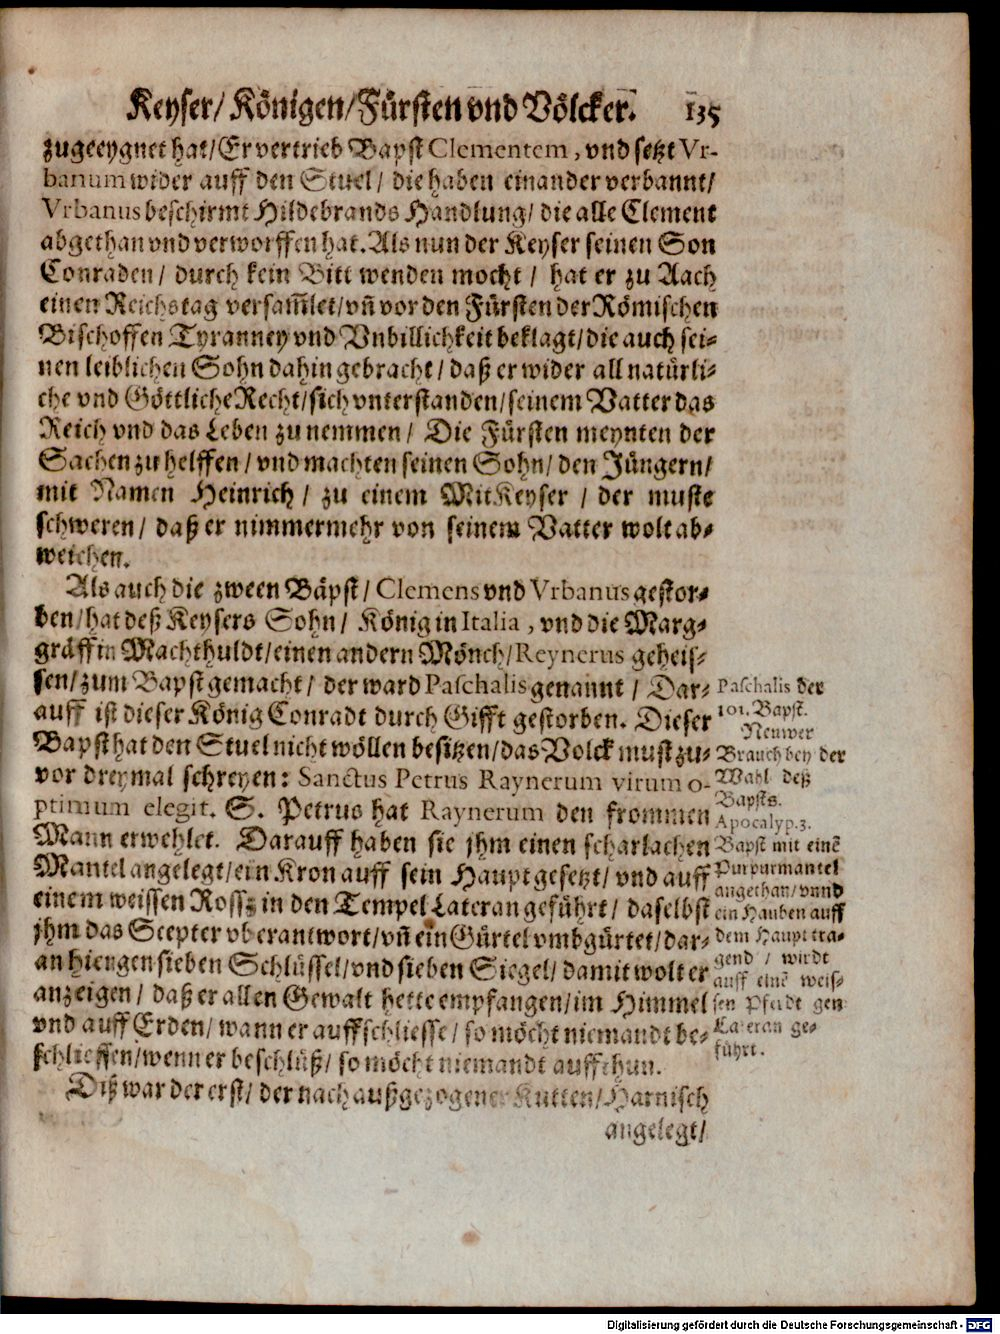 Keyser/ Königen/Fürsten vnd Völcker. 135
zugeeygnet hat/Er vertrieb Bapst Clementem, vnd setzt Vr-
banum wider auff den Stuel/ die haben einander verbannt/
Vrbanus beschirmt Hildebrands Handlung/ die alle Clement
abgethan vnd verworffen hat. Als nun der Keyser seinen Son
Conraden/ durch kein Bitt wenden mocht/ hat er zu Aach
einen Reichstag versam̃let/vñ vor den Fürsten der Römischen
Bischoffen Tyranney vnd Vnbillichkeit beklagt/die auch sei-
nen leiblichen Sohn dahin gebracht/ daß er wider all natürli-
che vnd Göttliche Recht/sich vnterstanden/seinem Vatter das
Reich vnd das Leben zu nemmen/ Die Fürsten meynten der
Sachen zu helffen/ vnd machten seinen Sohn/ den Jüngern/
mit Namen Heinrich/ zu einem MitKeyser/ der muste
schweren/ daß er nimmermehr von seinem Vatter wolt ab-
weichen.
Als auch die zween Bäpst/ Clemens vnd Vrbanus gestor-
ben/hat deß Keysers Sohn/ König in Italia, vnd die Marg-
gräffin Machthuldt/einen andern Mönch/Reynerus geheis-
sen/zum Bapst gemacht/ der ward Paschalis genannt/ Dar-
auff ist dieser König Conradt durch Gifft gestorben. Dieser
Bapst hat den Stuel nicht wöllen besitzen/das Volck must zu-
vor dreymal schreyen: Sanctus Petrus Raynerum virum o-
ptimum elegit. S. Petrus hat Raynerum den frommen
Mann erwehlet. Darauff haben sie jhm einen scharlachen
Mantel angelegt/ein Kron auff sein Haupt gesetzt/ vnd auff
einem weissen Ross in den Tempel Lateran geführt/ daselbst
jhm das Scepter vberantwort/vñ ein Gürtel vmbgürtet/dar-
an hiengen sieben Schlüssel/vnd sieben Siegel/ damit wolt er
anzeigen/ daß er allen Gewalt hette empfangen/im Himmel
vnd auff Erden/ wann er auffschliesse/ so möcht niemandt be-
schliessen/wenn er beschlüß/ so möcht niemandt auffthun.
Diß war der erst/ der nach außgezogener Kutten/Harnisch
angelegt/
Paschalis der
101. Bapst.
Neuwer
Brauch bey der
Wahl deß
Bapsts.
Apocalyp. 3.
Bapst mit einẽ
Purpurmantel
angethan/vnnd
ein Hauben auff
dem Haupt tra-
gend/ wirdt
auff einẽ weis-
sen Pferdt gen
Lateran ge-
führt.
Digitalisierung gefördert durch die Deutsche Forschungsgemeinschaft - DFG